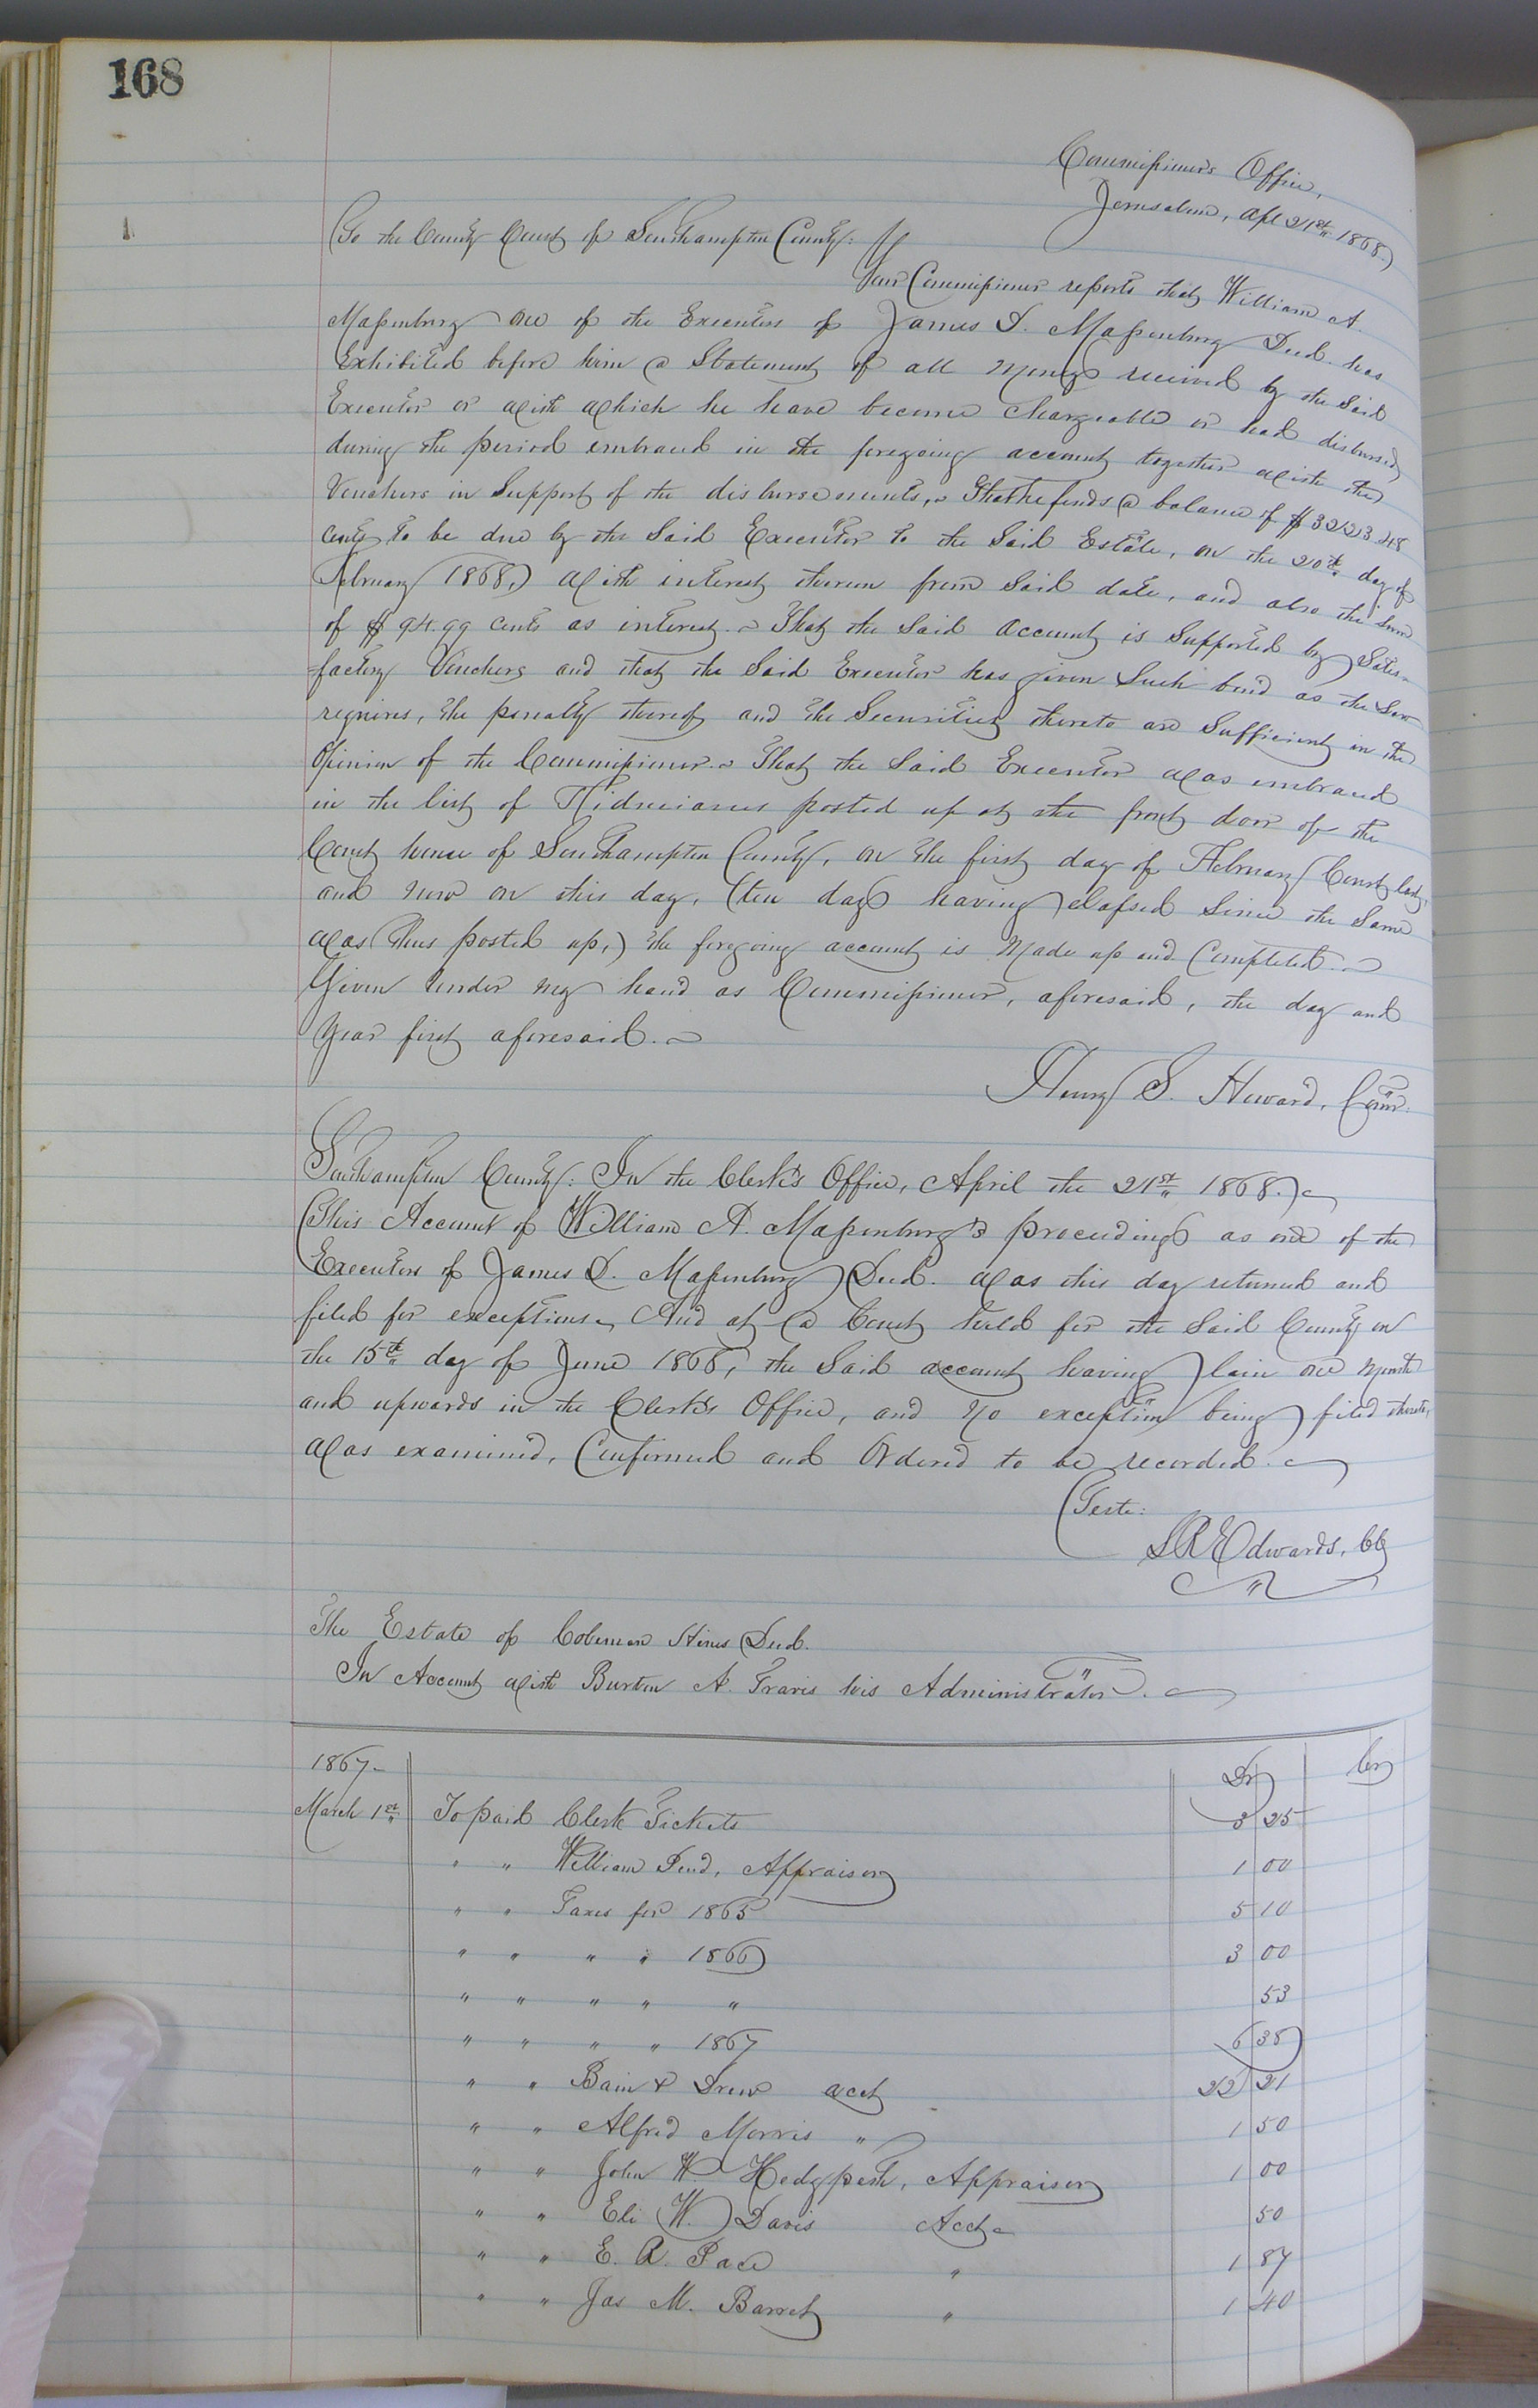 168
Commissioner's Office,
Jerusalem, Apl 21st 1868.
To the County Court of Southampton County:
Your Commissioner reports that William A.
Massenburg one of the Executors of James D. Massenburg Decd. has
Exhibited before him a Statement of all moneys received by the said
Executor or with which he have become chargeable or had disbursed,
during the period embraced in the foregoing account together with the
Vouchers in Support of the disbursements, That he finds a balance of
cents to be due by the Said Executor to the Said Estate, on the 20th day of
February 1868, with interest thereon from said date, and also the sum
of $94.99 cents as interest. That the Said Account is Supported by Satis-
factory Vouchers and that the Said Executor has given Such bond as the Law
requires, the penalty thereof and the Securities thereto are Sufficient in the
Opinion of the Commissioner. That the Said Executor was embraced
in the list of Fiduciaries posted up at the front door of the
Court house of Southampton County, on the first day of February Court last,
and now on this day, (ten days having elapsed Since the Same
was thus posted up,) the foregoing account is Made up and Completed.
Given under my hand as Commissioner, aforesaid, the day and
Year first aforesaid.
Henry S. Howard, Comr.
Southampton County: In the Clerk's Office, April the 21st 1868.
This Account of William A. Massenburg's proceedings as one of the
Executors of James D. Massenburg Decd. was this day returned and
filed for exceptions, And at a Court held for the Said County on
the 15th day of June 1868, the Said account having lain one Month
and upwards in the Clerk's Office, and no exception being filed thereto,
was examined, Confirmed and Ordered to be recorded.
Teste:
LREdwards, CC
The Estate of Coleman Hines Decd.
In Account with Burton A. Travis his Administrator.
1867 Dr Cr
March 1st To paid Clerk Tickets 3 25
" " William Pend, Appraiser 1 00
" " Taxes for 1865 5 10
" " " " 1866 3 00
" " " " " 53
" " " " 1867 6 38
" " Bain & Drew acct 22 21
" " Alfred Morris " 1 50
" " John W. Hedgpeth, Appraiser 1 00
" " Eli W. Davis Acct 50
" " E. R. Pace " 1 87
" " Jas M. Barret " 1 40